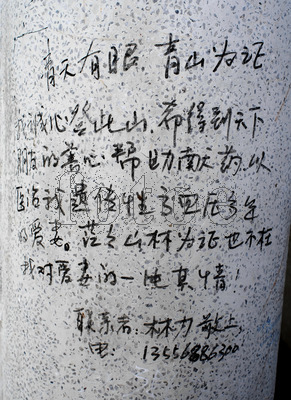 青天有眼,青山为证
我诚心登此山,希得到天下
朋友的善心,帮助献药,以
医治我遗传性高血压多年
的爱妻。茫茫山林为证也不在
我对爱妻的一池真情!
联系者:林力敬上,
电:13556886300